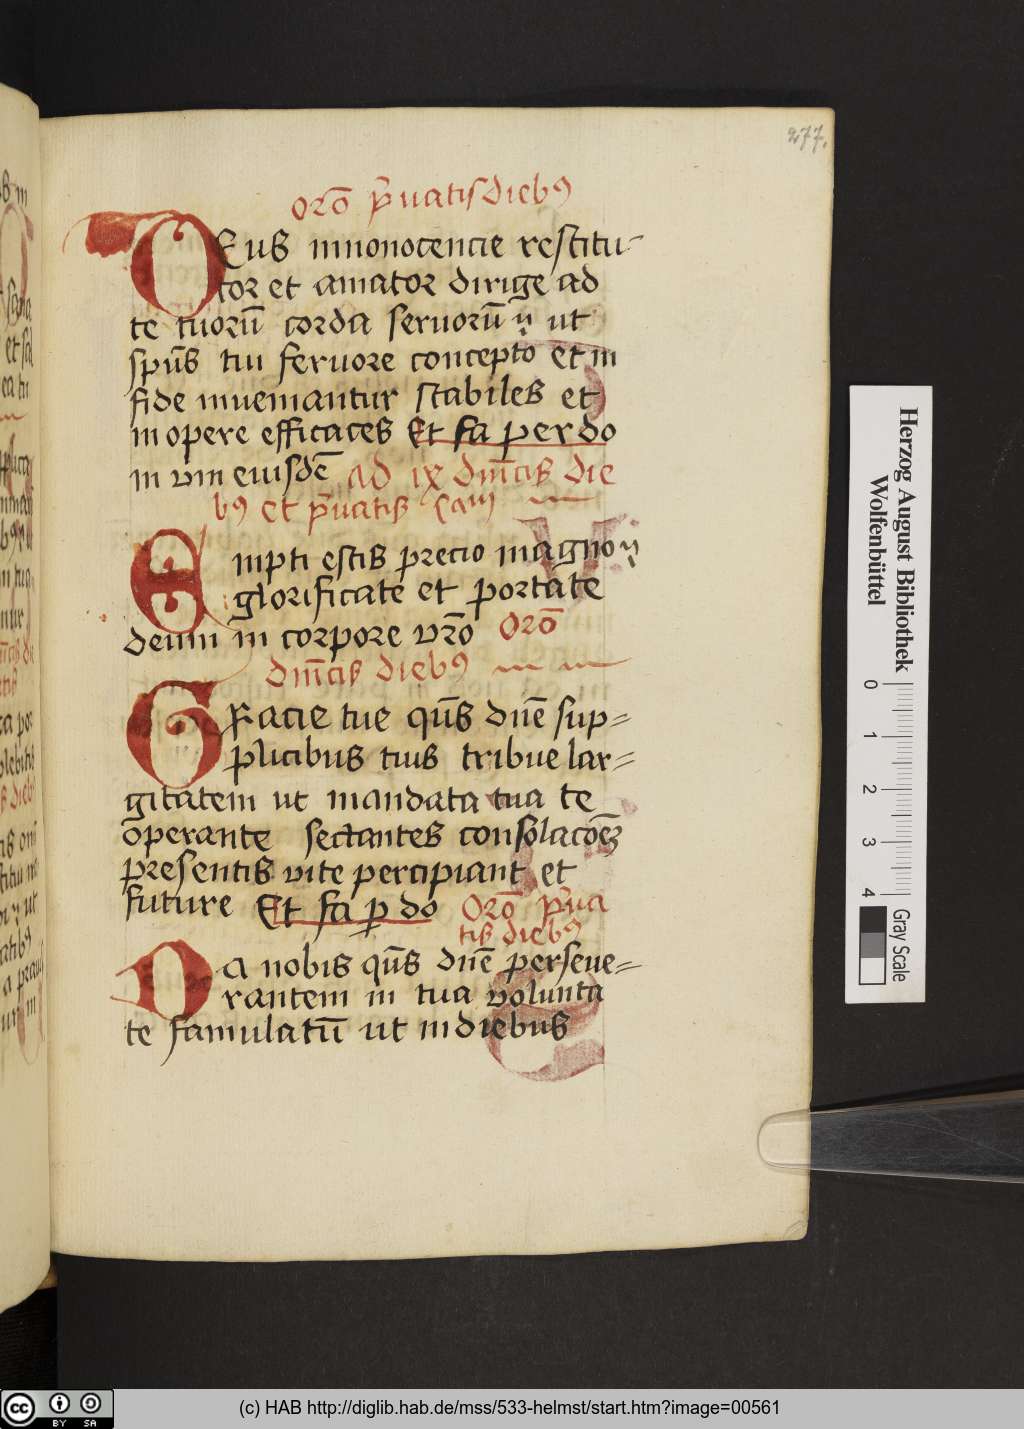 277.
Oro͞ p̄uatis dieb9
DEus innonocencie restitu-
tor et amator dirige ad
te tuoru͞ corda seruoru͞ ut
spu͞s tui feruore concepto et in
fide inueniantur stabiles et
in opere efficaces Et fa per do
in vni eiusde͞ ad ix dn͞icis die
b9 et p̄uatis Cam
Empti estis precio magno
glorificate et portate
deum in corpore vr͞o Oro͞
dn͞icis dieb9
GRacie tue qu͞s dn͞e sup-
plicibus tuis tribue lar-
gitatem ut mandata tua te
operante sectantes consolaco͞eʒ
presentis vite percipiant et
future Et fa p do Oro͞ p̄ua
tis dieb9
DA nobis qu͞s dn͞e perseue-
rantem in tua volunta
te famulatu͞ ut in diebus
Herzog August Bibliothek
Wolfenbüttel
0 1 2 3 4
Gray Scale
cc BY SA
(c) HAB http://diglib.hab.de/mss/533-helmst/start.htm?image=00561